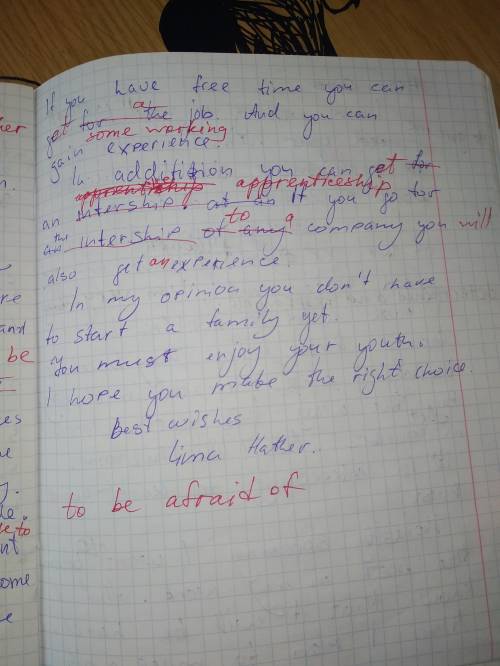 If you have free time you can
get for a the job. And you can
gain some working experience.
In addition you can get for
an intership apprenticeship. If you go for
the intership of any to a company you will
also get an experience.
In my opinion you don't have
to start a family yet.
You must enjoy your youth.
I hope you make the right choice.
Best wishes
Lina Hather.
to be afraid of
be
and